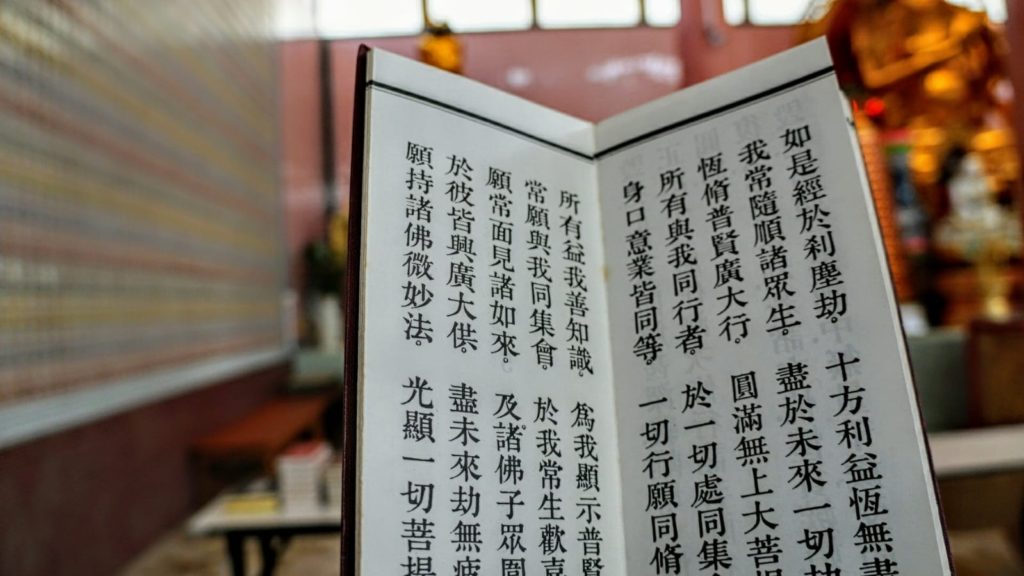 如是經於刹塵劫。十方利益恆無盡
我常隨順諸眾生。盡於未來一切劫
恆脩普賢廣大行。圓滿無上大菩提
所有與我同行者。於一切處同集
身口意業皆同等。一切行願同脩
所有益我善知識。為我顯示普賢
常願與我同集會。於我常生歡喜
願常面見諸如來。及諸佛子眾圍
於彼皆興廣大供。盡未來劫無疲
願持諸佛微妙法。光顯一切菩提